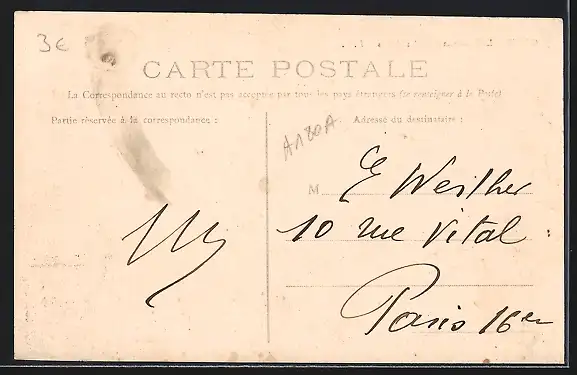 3€
CARTE POSTALE
La Correspondance au recto n'est pas acceptée par tous les pays étrangers (se renseigner à la Poste)
Partie réservée à la correspondance :
Adresse du destinataire :
A180A
M E Weither
10 rue Vital
Paris 16er